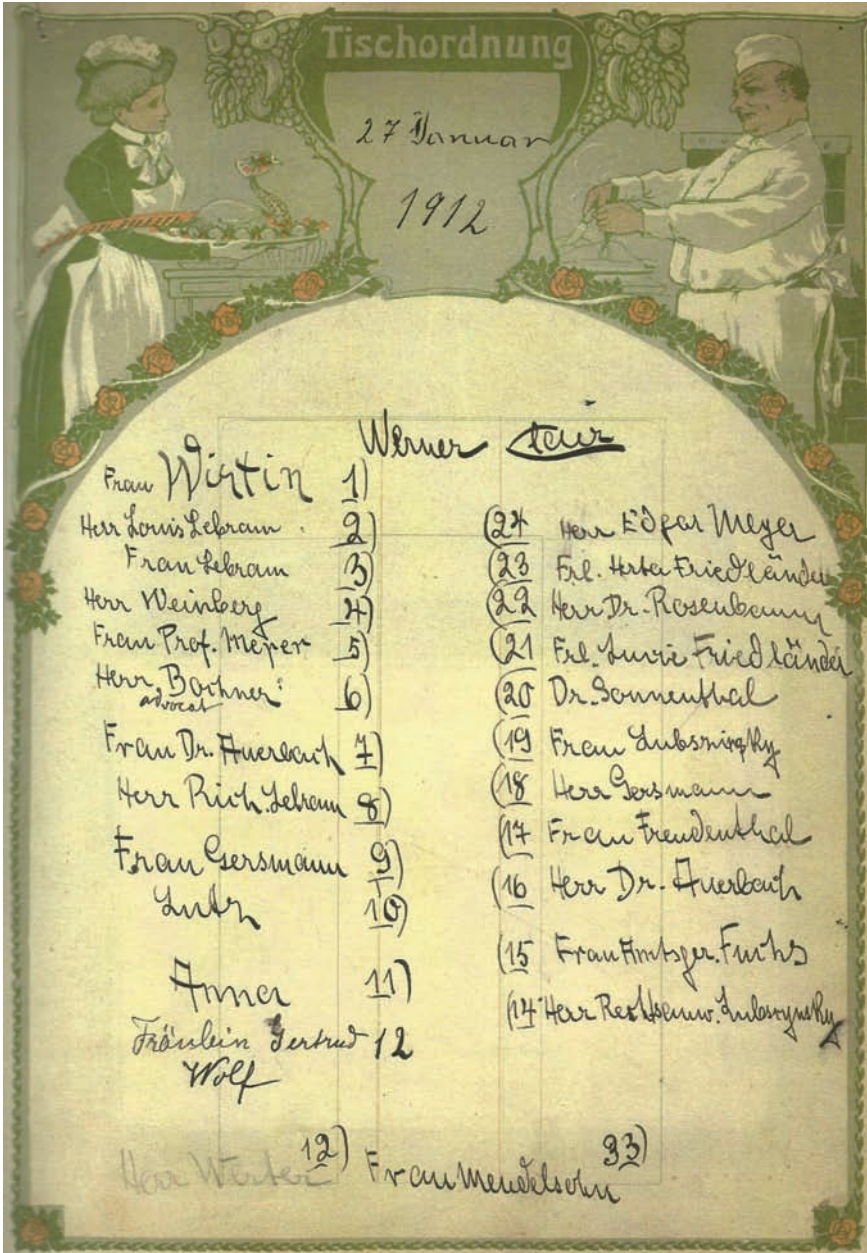 Tischordnung
27 Januar
1912
Werner
Frau Wirtin 1)
Herr Louis Lebram 2)
Frau Lebram 3)
Herr Weinberg 4)
Frau Prof. Meyer 5)
Herr Bochner 6)
advocat
Frau Dr. Auerbach 7)
Herr Rich. Lebram 8)
Frau Gersmann 9)
Lutz 10)
Anna 11)
Fräulein Gertrud 12
Wolf
(24 Herr Edgar Meyer
(23 Frl. Herta Friedländer
(22 Herr Dr. Rosenbaum
(21 Frl. Friedländer
(20 Dr. Sonnenthal
(19 Frau Lubszynsky
(18 Herr Gersmann
(17 Frau Freudenthal
(16 Herr Dr. Auerbach
(15 Frau Amtsger. Fuchs
(14 Herr Rechtsanw. Lubszynsky
Herr 12) Frau Mendelsohn 33)